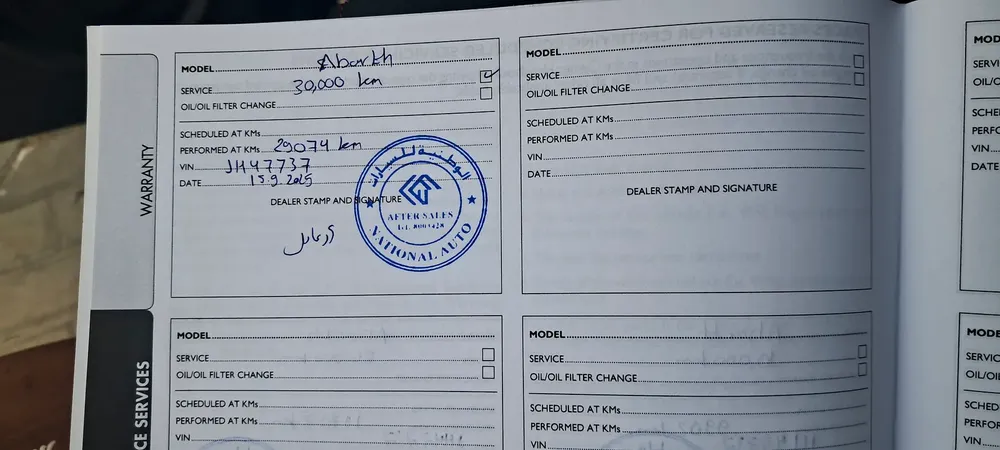 WARRANTY
MODEL Abarth
SERVICE 30,000 km
OIL/OIL FILTER CHANGE
SCHEDULED AT KMs
PERFORMED AT KMs 29074 km
VIN JH47737
DATE 15.9.2025
DEALER STAMP AND SIGNATURE
الوطنية للسيارات
AFTER SALES
NATIONAL AUTO
MODEL
SERVICE
OIL/OIL FILTER CHANGE
SCHEDULED AT KMs
PERFORMED AT KMs
VIN
DATE
DEALER STAMP AND SIGNATURE
CE SERVICES
MODEL
SERVICE
OIL/OIL FILTER CHANGE
SCHEDULED AT KMs
PERFORMED AT KMs
VIN
MODEL
SERVICE
OIL/OIL FILTER CHANGE
SCHEDULED AT KMs
PERFORMED AT KMs
VIN
MOD
SERVI
OIL/O
SCHE
PERFO
VIN
DATE
MODE
SERVIC
OIL/OI
SCHED
PERFOR
VIN